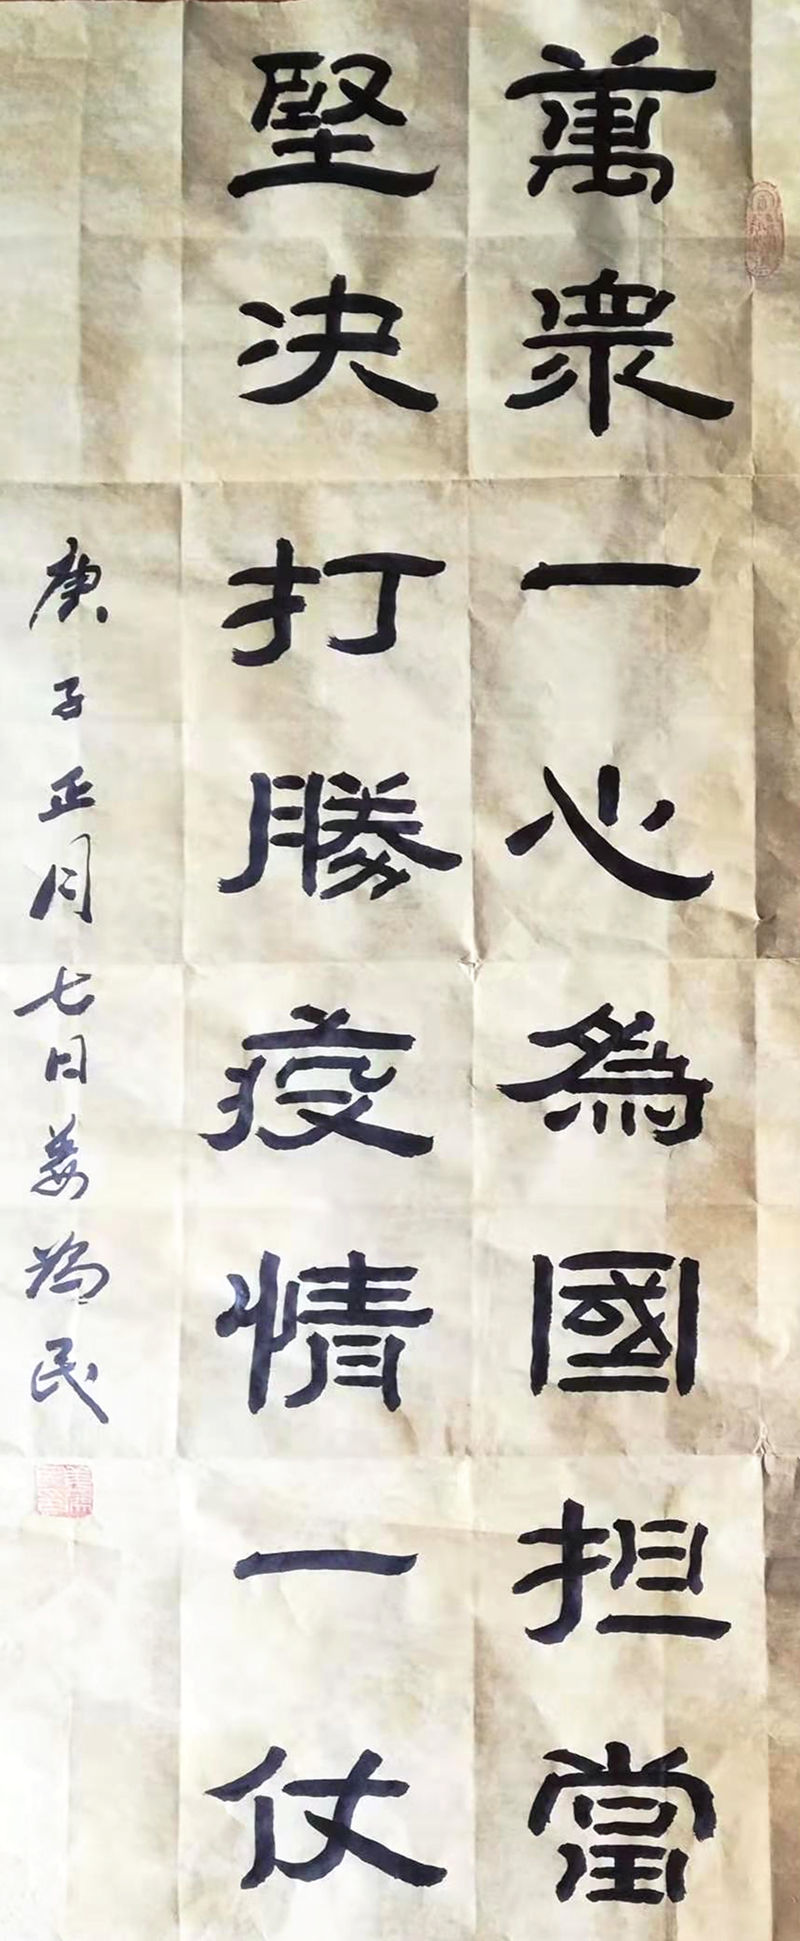 萬衆一心為國担當
堅决打勝疫情一仗
庚子正月七日姜為民